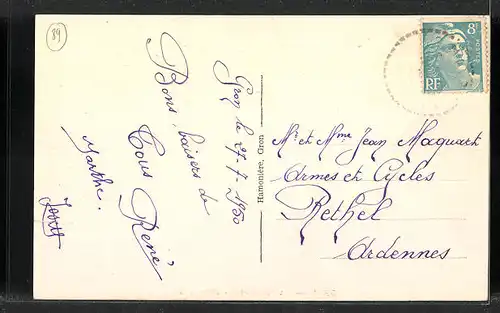 89
Gron le 27-7-1950
Bons baisers de
Tous René
Marthe.
Hamonière, Gron
8F
POSTES
RF
Mr et Mme Jean Maquart
Armes et Cycles
Rethel
Ardennes